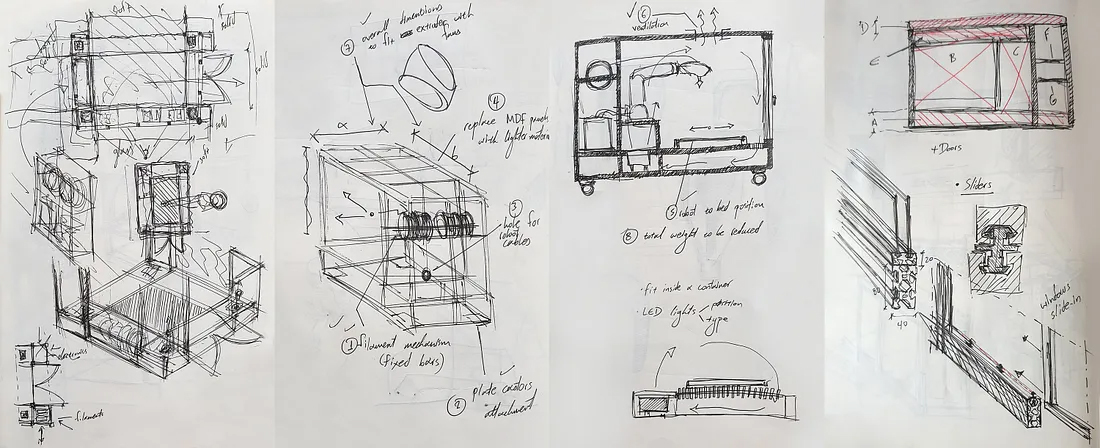 solid
solid
solid
glass
electronics
filaments
✓
⑦ overall dimensions
to fit extruder with
fans
④
replace MDF panels
with lighter material
a
b
③
hole for
robot
cables
✓ ✓
① filament mechanism
(fixed bars)
✓
② plate castors
attachment
✓ ⑥
ventilation
⑤ robot to bed position
⑧ total weight to be reduced
· fit inside a container
· LED lights
position
type
D
E
B
C
F
G
A
+ Doors
· Sliders
20
80
40
windows
slide-in